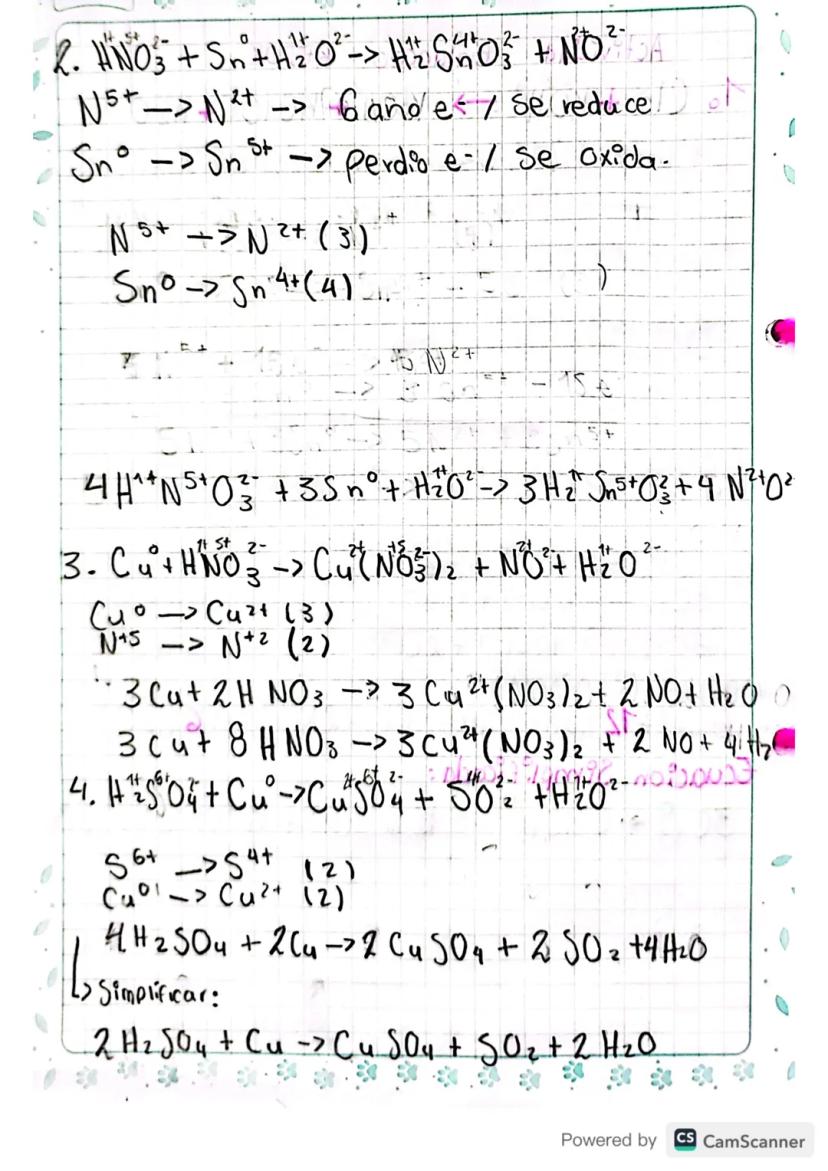 2. H¹⁺N⁵⁺O₃²⁻ + Sn⁰ + H₂¹⁺O²⁻ -> H₂¹⁺Sn⁴⁺O₃²⁻ + N²⁺O²⁻
N⁵⁺ -> N²⁺ -> Gano e- / se reduce
Sn⁰ -> Sn⁵⁺ -> perdio e- / se oxida.
N⁵⁺ -> N²⁺ (3)
Sn⁰ -> Sn⁴⁺ (4)
4H¹⁺N⁵⁺O₃²⁻ + 3Sn⁰ + H₂¹⁺O²⁻ -> 3H₂¹⁺Sn⁵⁺O₃²⁻ + 4 N²⁺O²
3. Cu⁰ + H¹⁺N⁵⁺O₃²⁻ -> Cu²⁺(N⁺⁵O₃²⁻)₂ + N²⁺O²⁻ + H₂¹⁺O²⁻
Cu⁰ -> Cu²⁺ (3)
N⁺⁵ -> N⁺² (2)
3Cu + 2H NO₃ -> 3 Cu²⁺(NO₃)₂ + 2 NO + H₂O
3 Cu + 8 H NO₃ -> 3 Cu²⁺(NO₃)₂ + 2 NO + 4 H₂
4. H₂¹⁺S⁶⁺O₄²⁻ + Cu⁰ -> Cu²⁺S⁶⁺O₄²⁻ + S⁴⁺O₂²⁻ + H₂¹⁺O²⁻
S⁶⁺ -> S⁴⁺ (2)
Cu⁰ -> Cu²⁺ (2)
4H₂SO₄ + 2Cu -> 2 CuSO₄ + 2 SO₂ + 4H₂O
↳ Simplificar:
2 H₂SO₄ + Cu -> CuSO₄ + SO₂ + 2 H₂O
Powered by CS CamScanner